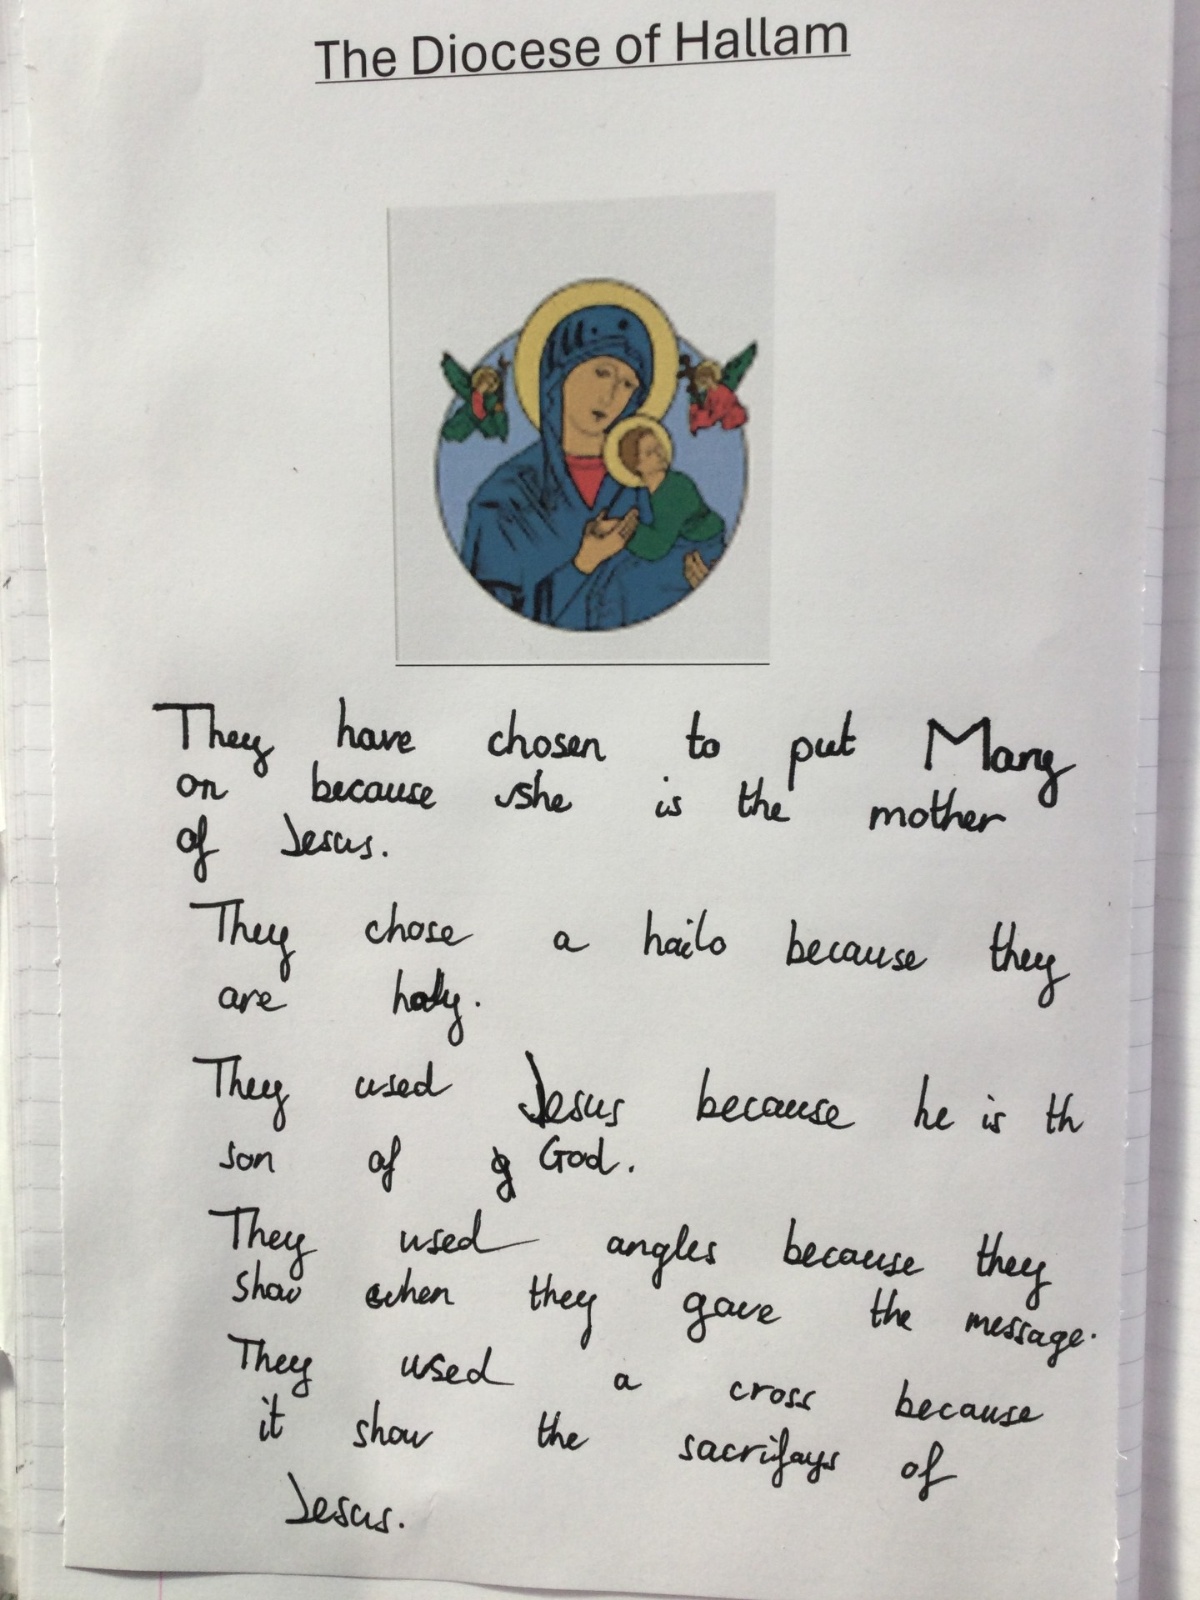 The Diocese of Hallam
They have chosen to put Mary
on because she is the mother
of Jesus.
They chose a hailo because they
are holy.
They used Jesus because he is th
son of g God.
They used angles because they
show when they gave the message.
They used a cross because
it show the sacrifays of
Jesus.